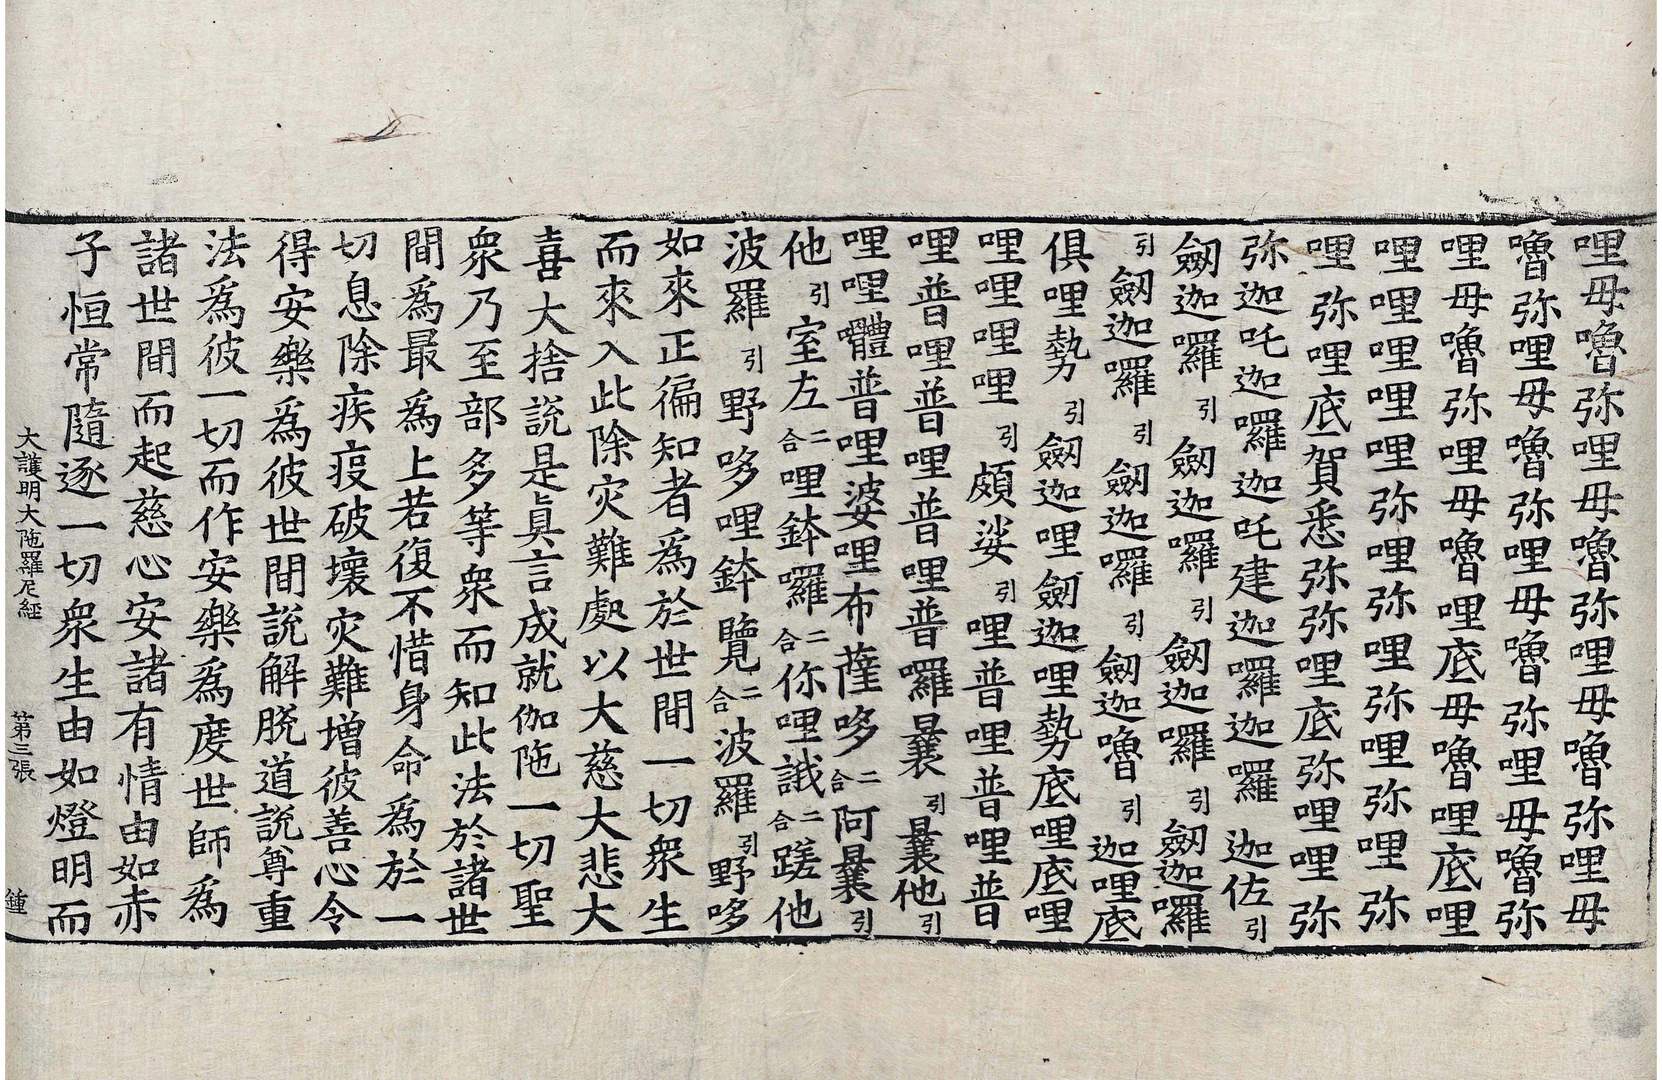 哩毋嚕弥哩毋嚕弥哩毋嚕弥哩毋
嚕弥哩毋嚕弥哩毋嚕弥哩毋嚕弥
哩毋嚕弥哩毋嚕哩底毋嚕哩底哩
哩哩哩哩弥哩弥哩弥哩弥哩弥
哩弥哩底賀悉弥弥哩底弥哩哩弥
弥迦吒迦囉迦吒建迦囉迦囉迦佐引
劔迦囉引劔迦囉引劔迦囉引劔迦囉
引劔迦囉引劔迦囉引劔迦嚕引迦哩底
俱哩勢引劔迦哩劔迦哩勢底哩底哩
哩哩哩哩引頗娑引哩普哩普哩普
哩普哩普哩普哩普羅曩引曩他引
哩哩體普哩婆哩布薩哆二合阿曩引
他引室左二合哩鉢囉二合你哩誐二合蹉他
波羅引野哆哩鉢覽二合波羅引野哆
如來正徧知者為於世間一切衆生
而來入此除灾難處以大慈大悲大
喜大捨說是眞言成就伽陁一切聖
衆乃至部多等衆而知此法於諸世
間為最為上若復不惜身命為於一
切息除疾疫破壞灾難增彼善心令
得安樂為彼世間說解脫道說尊重
法為彼一切而作安樂為度世師為
諸世間而起慈心安諸有情由如赤
子恒常隨逐一切衆生由如燈明而
大護明大陁羅尼經 第三張 鍾